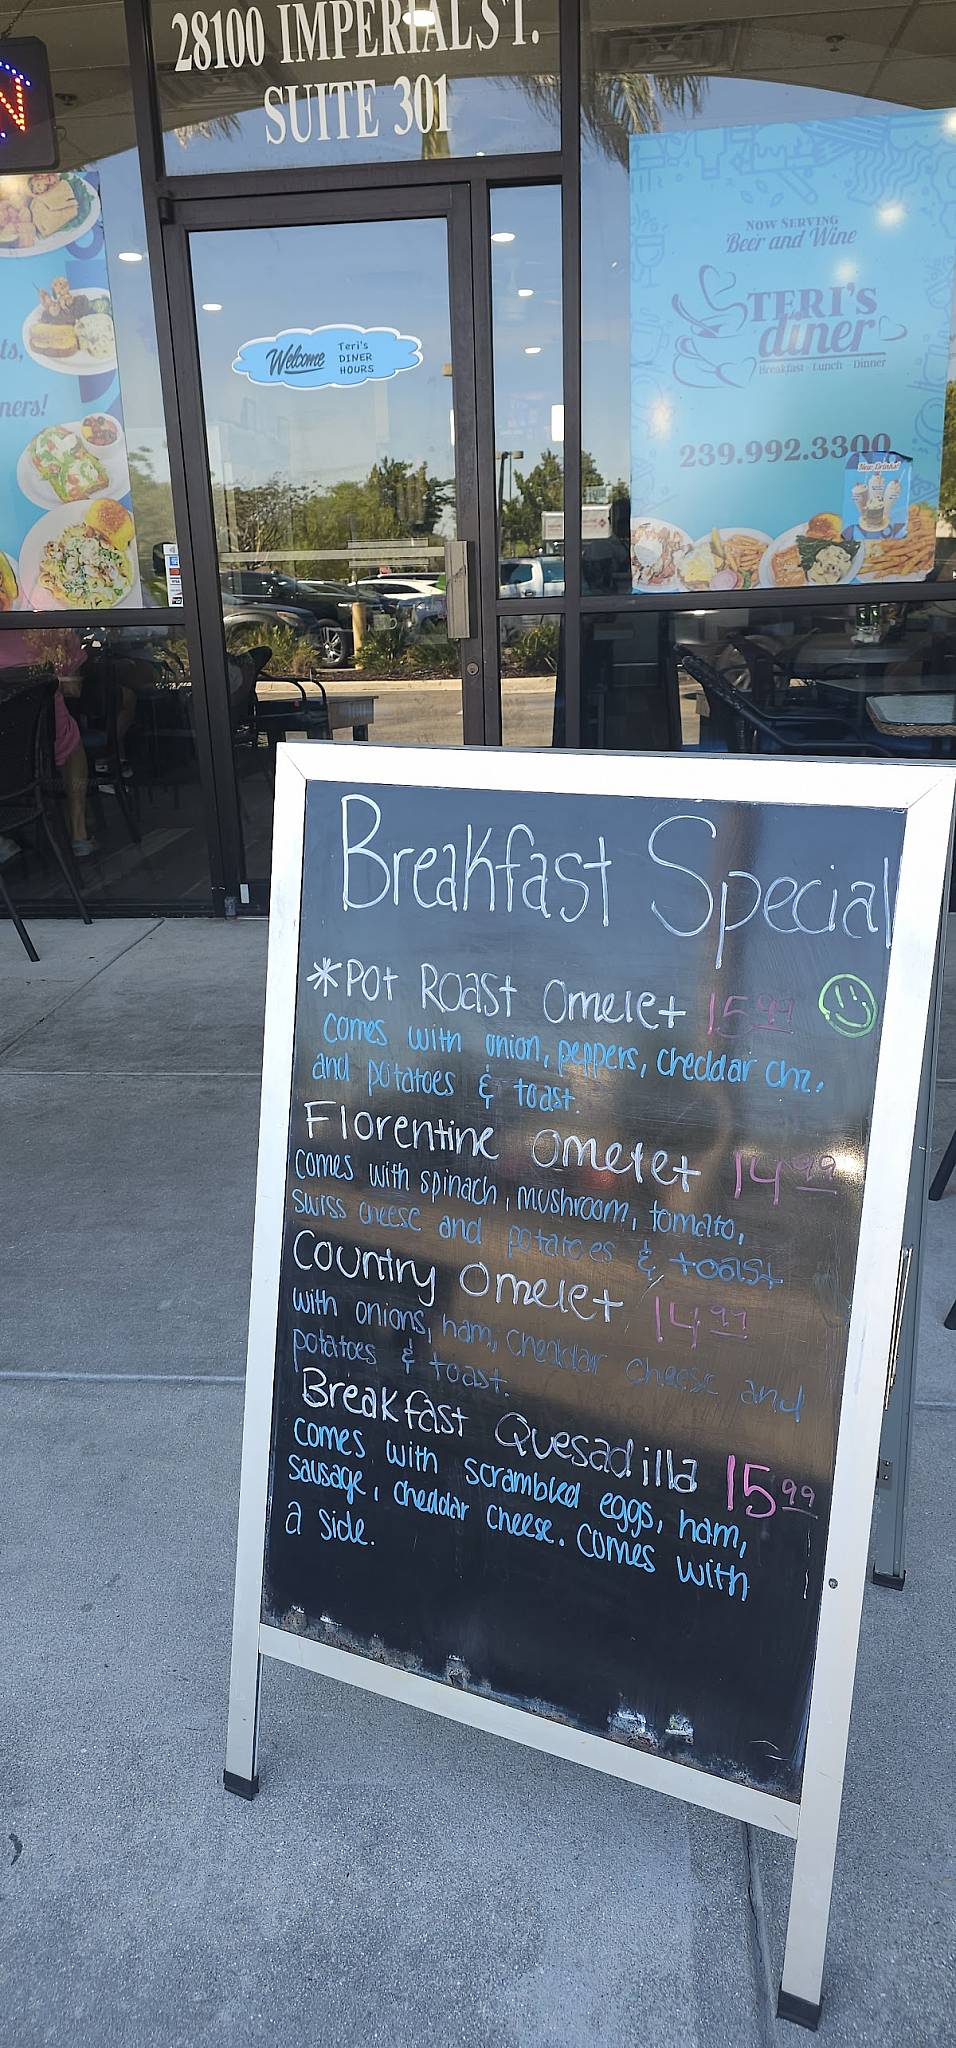 28100 IMPERIAL ST.
SUITE 301
N
Now Serving
Beer and Wine
TERI'S
diner
Breakfast · Lunch · Dinner
239.992.3300
New Drinks!
Welcome
Teri's
DINER
HOURS
ts,
ners!
VISA
Breakfast Special
*Pot Roast Omelet 15.99
comes with onion, peppers, cheddar chz,
and potatoes & toast.
Florentine Omelet 14.99
comes with spinach, mushroom, tomato,
swiss cheese and potatoes & toast
Country Omelet 14.99
with onions, ham, cheddar cheese and
potatoes & toast.
Breakfast Quesadilla 15.99
comes with scrambled eggs, ham,
sausage, cheddar cheese. comes with
a side.